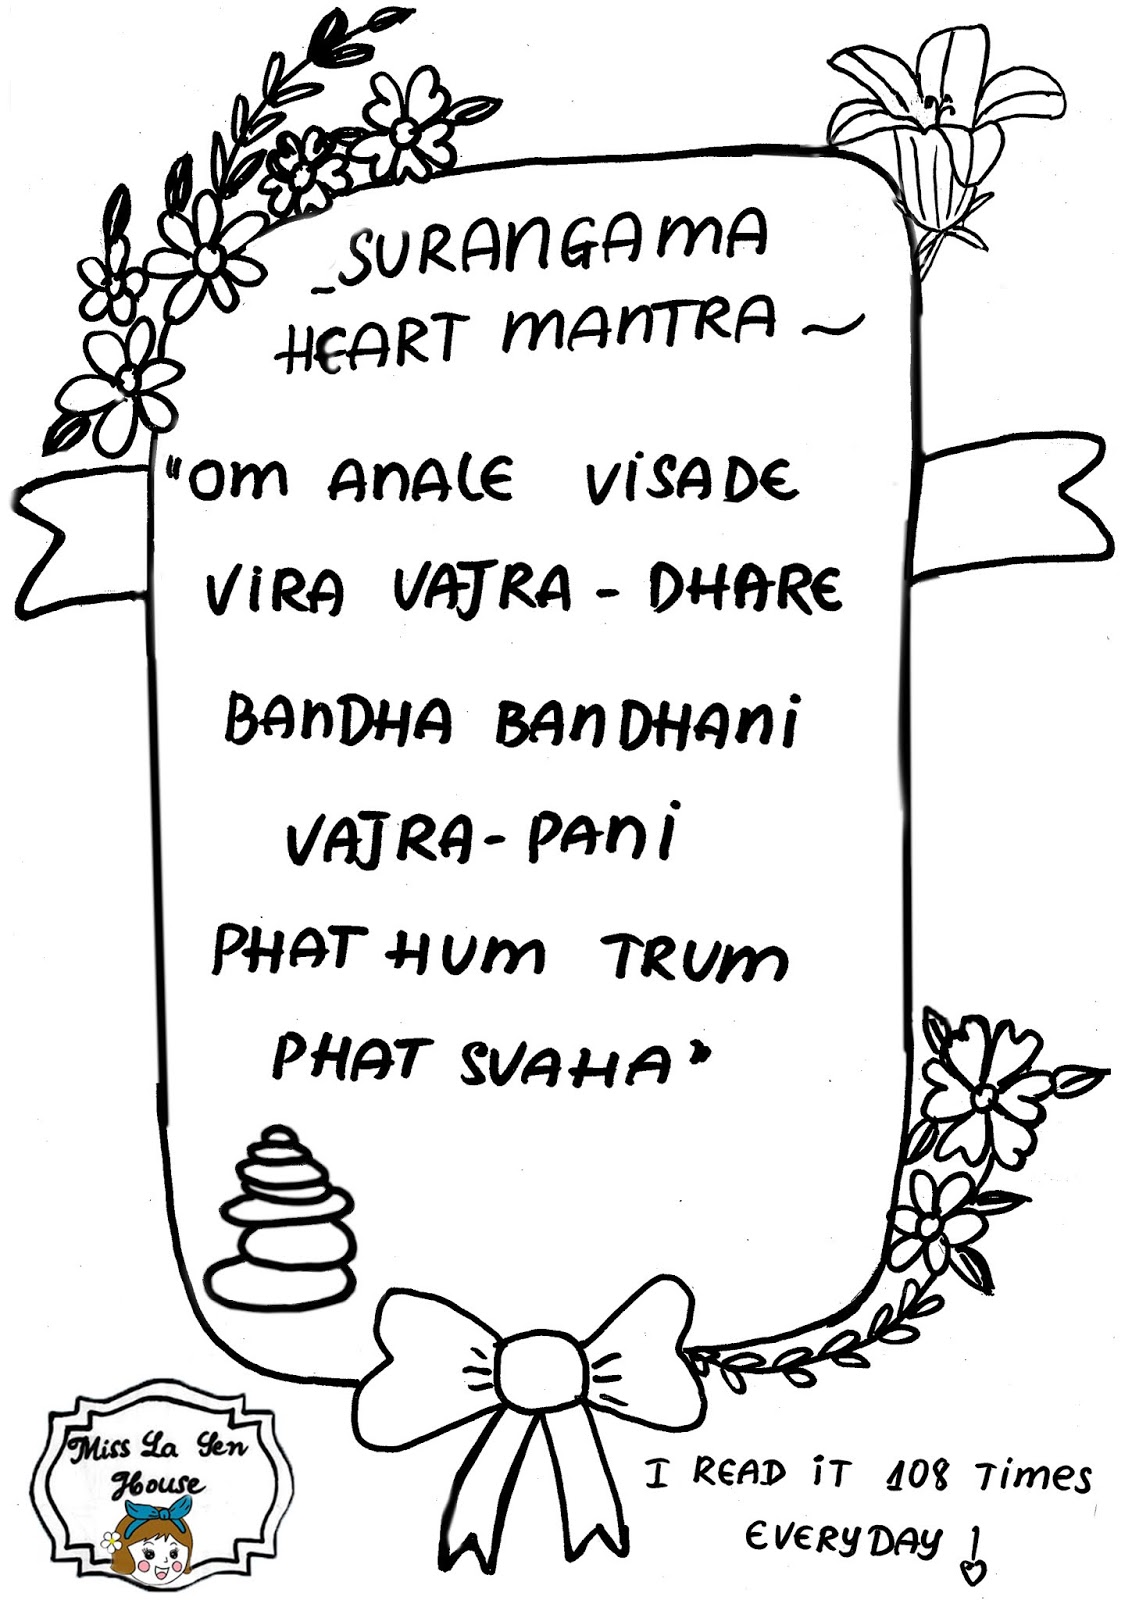 _SURANGAMA
HEART MANTRA ~
"OM ANALE VISADE
VIRA VAJRA - DHARE
BANDHA BANDHANI
VAJRA - PANI
PHAT HUM TRUM
PHAT SVAHA"
Miss La Sen
House
I READ IT 108 TIMES
EVERYDAY !